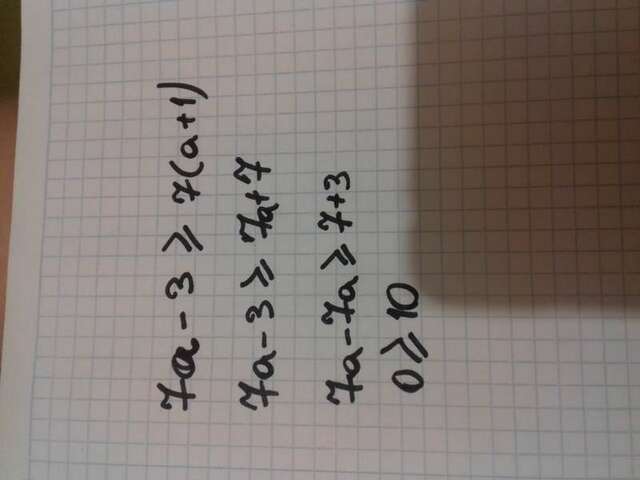 7a - 3 ⩾ 7(a+1)
7a - 3 ⩾ 7a+7
7a - 7a ⩾ 7+3
0 ⩾ 10